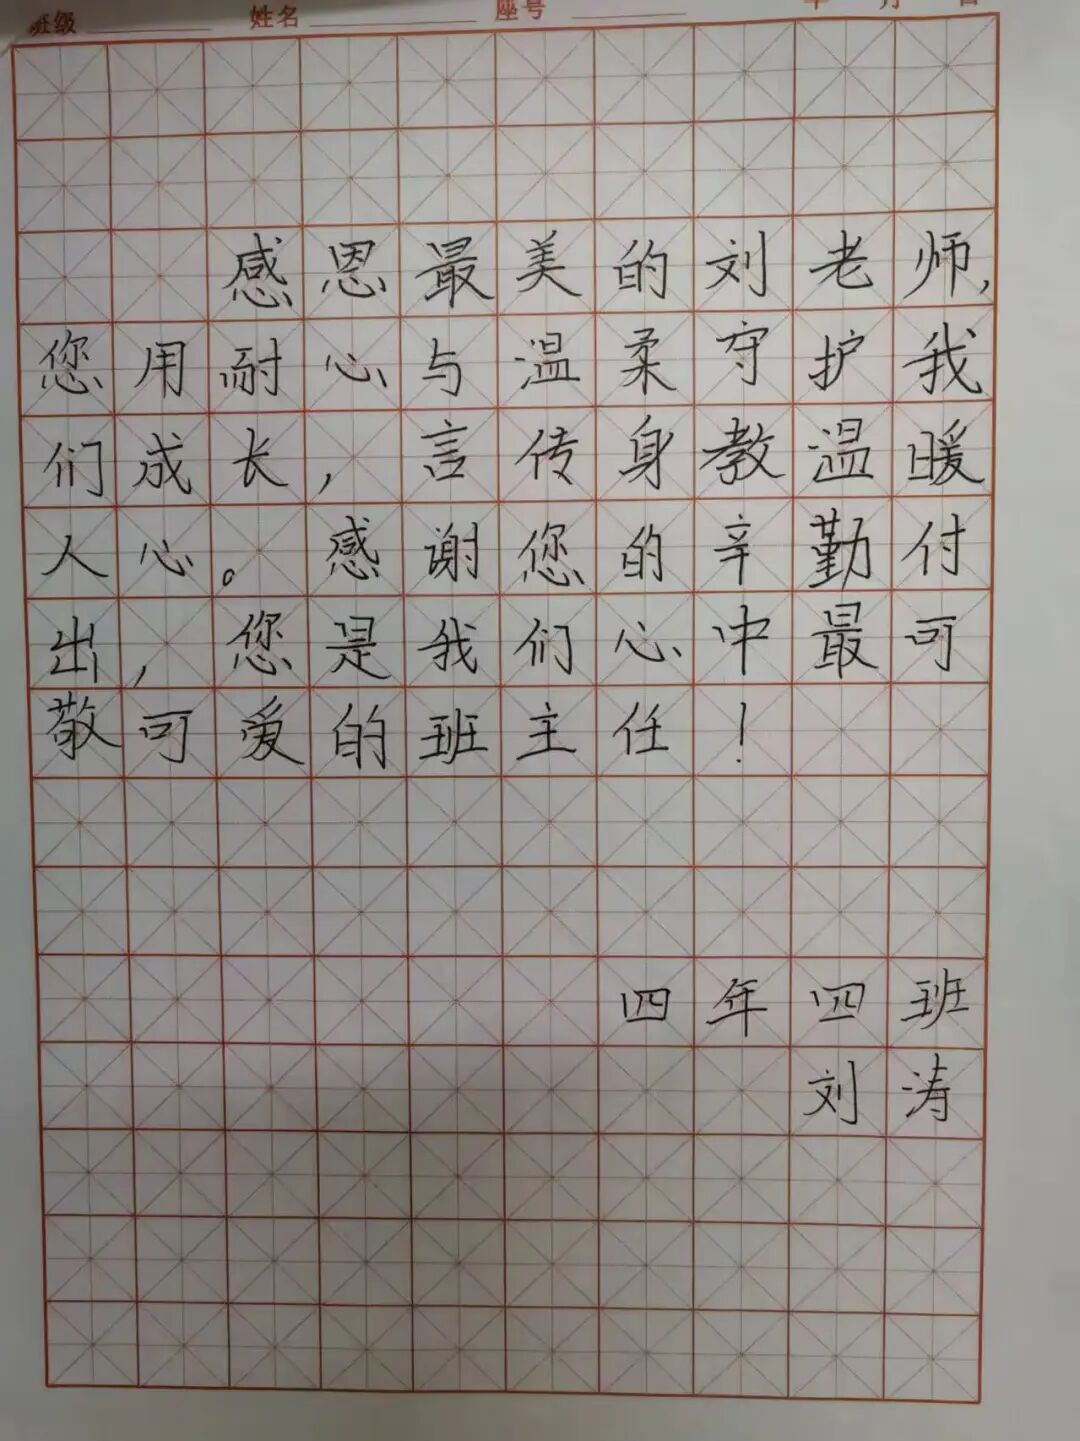 班级 姓名 座号 年 月 日
感恩最美的刘老师,
您用耐心与温柔守护我
们成长,言传身教温暖
人心。感谢您的辛勤付
出,您是我们心中最可
敬可爱的班主任!
四年四班
刘涛